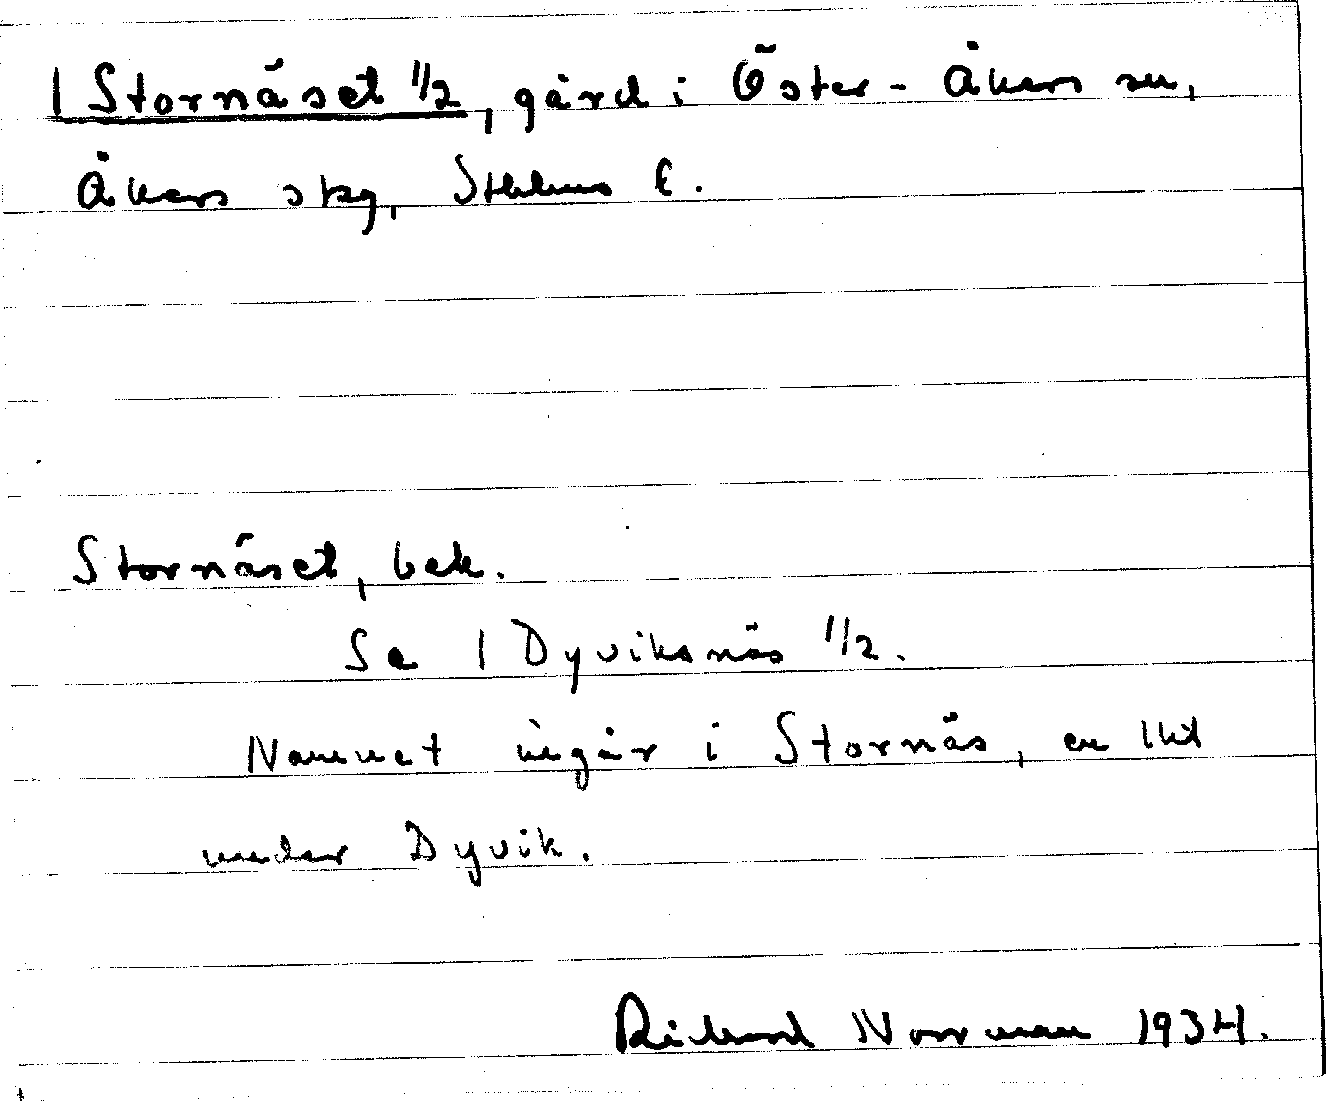 1 Stornäset 1/2, gård i Öster-Åkers sn,
Åkers skg, Sthlms l.
Stornäset, bek.
Se 1 Dyviksnäs 1/2.
Namnet ingår i Stornäs, en lht
under Dyvik.
Rickard Norrman 1934.